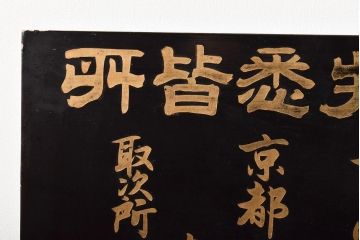 悉皆所
京都
取次所